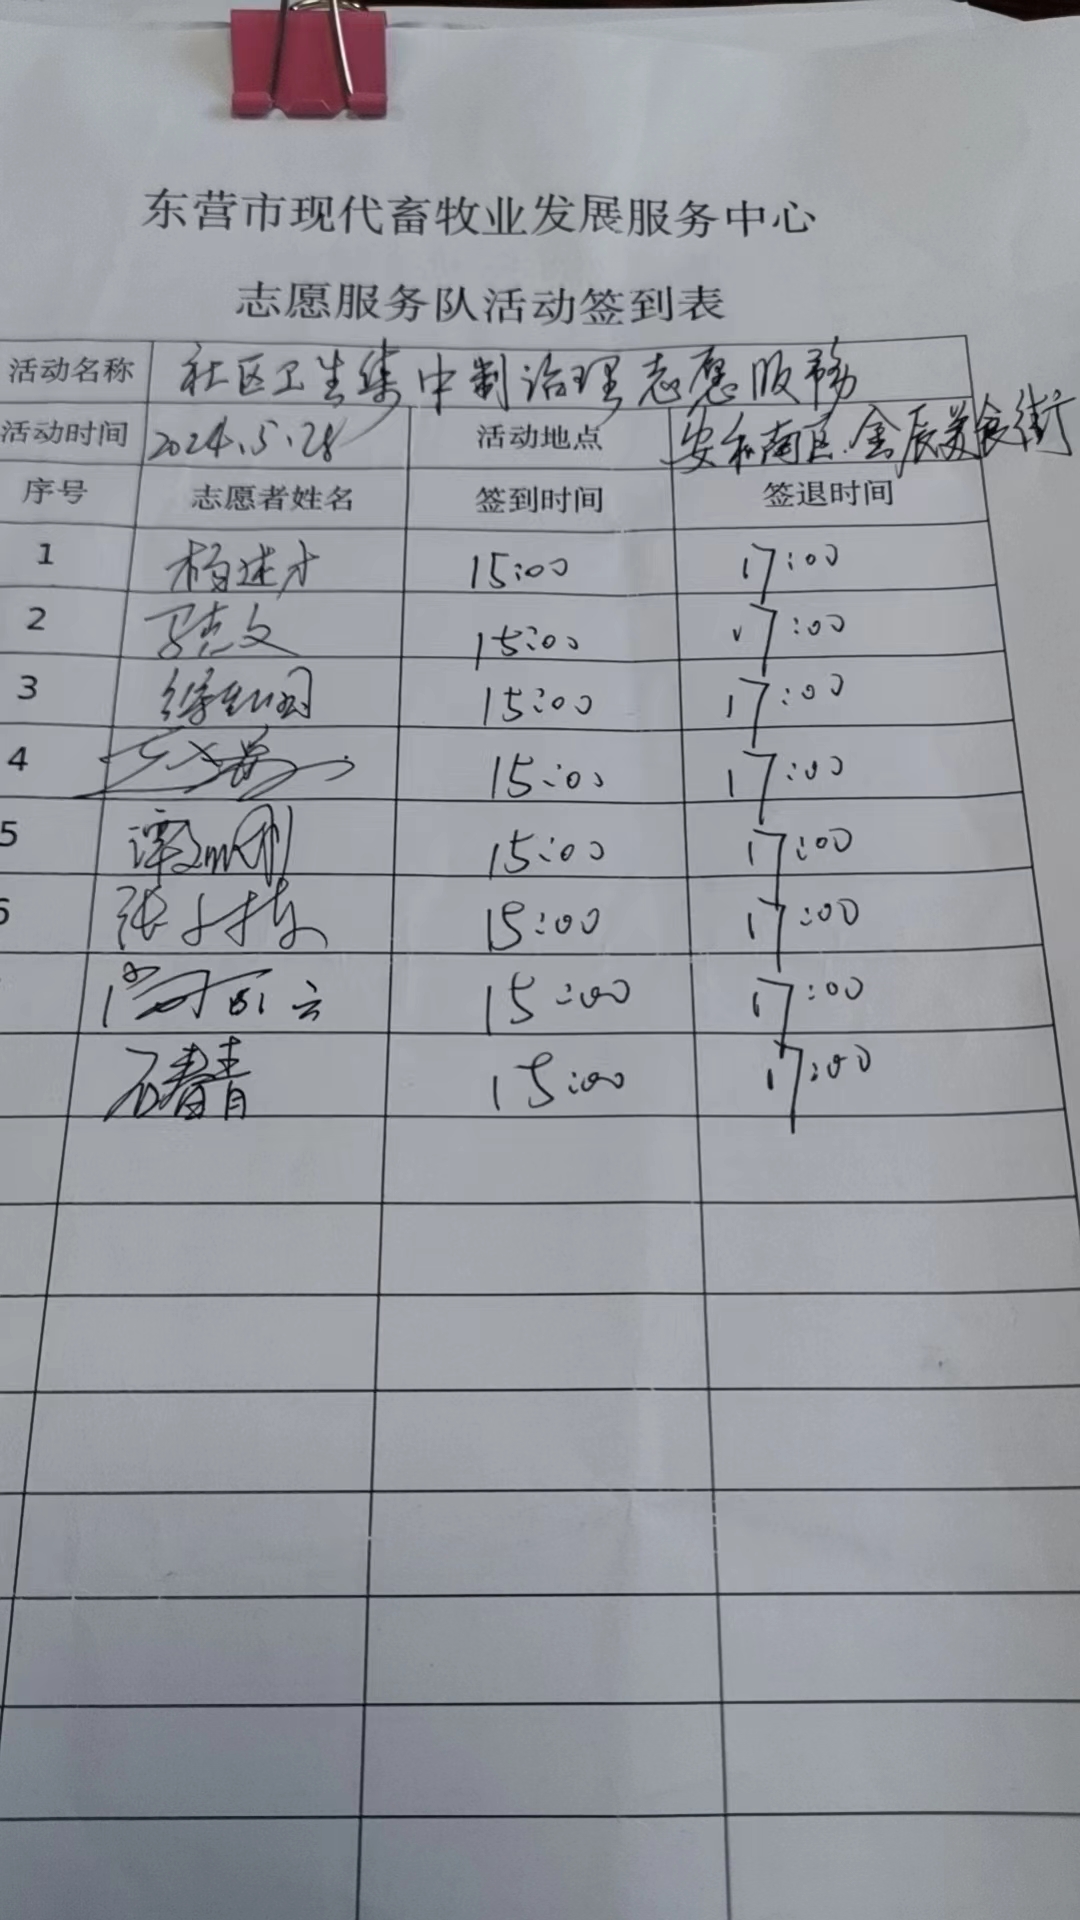 东营市现代畜牧业发展服务中心
志愿服务队活动签到表
活动名称 社区卫生集中制治理志愿服务
活动时间 2024.5.28 活动地点 安和南区.金辰美食街
序号 志愿者姓名 签到时间 签退时间
1 杨建才 15:00 17:00
2 15:00 17:00
3 15:00 17:00
4 15:00 17:00
5 谭 15:00 17:00
6 张 15:00 17:00
15:00 17:00
石春青 15:00 17:00